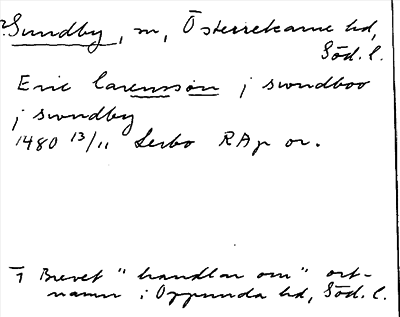 Sundby, m, Österrekarne hd,
Söd. l.
Eric Carensson j swndboo
j swndby
1480 13/11 Lerbo RAp or.
Brevet "handlar om" ort-
namn i Oppunda hd, Söd. l.